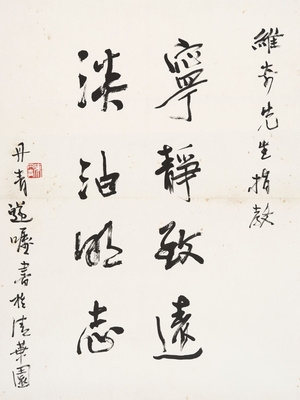 維 先生指教
寧靜致遠
淡泊明志
丹青遵囑書於清華園